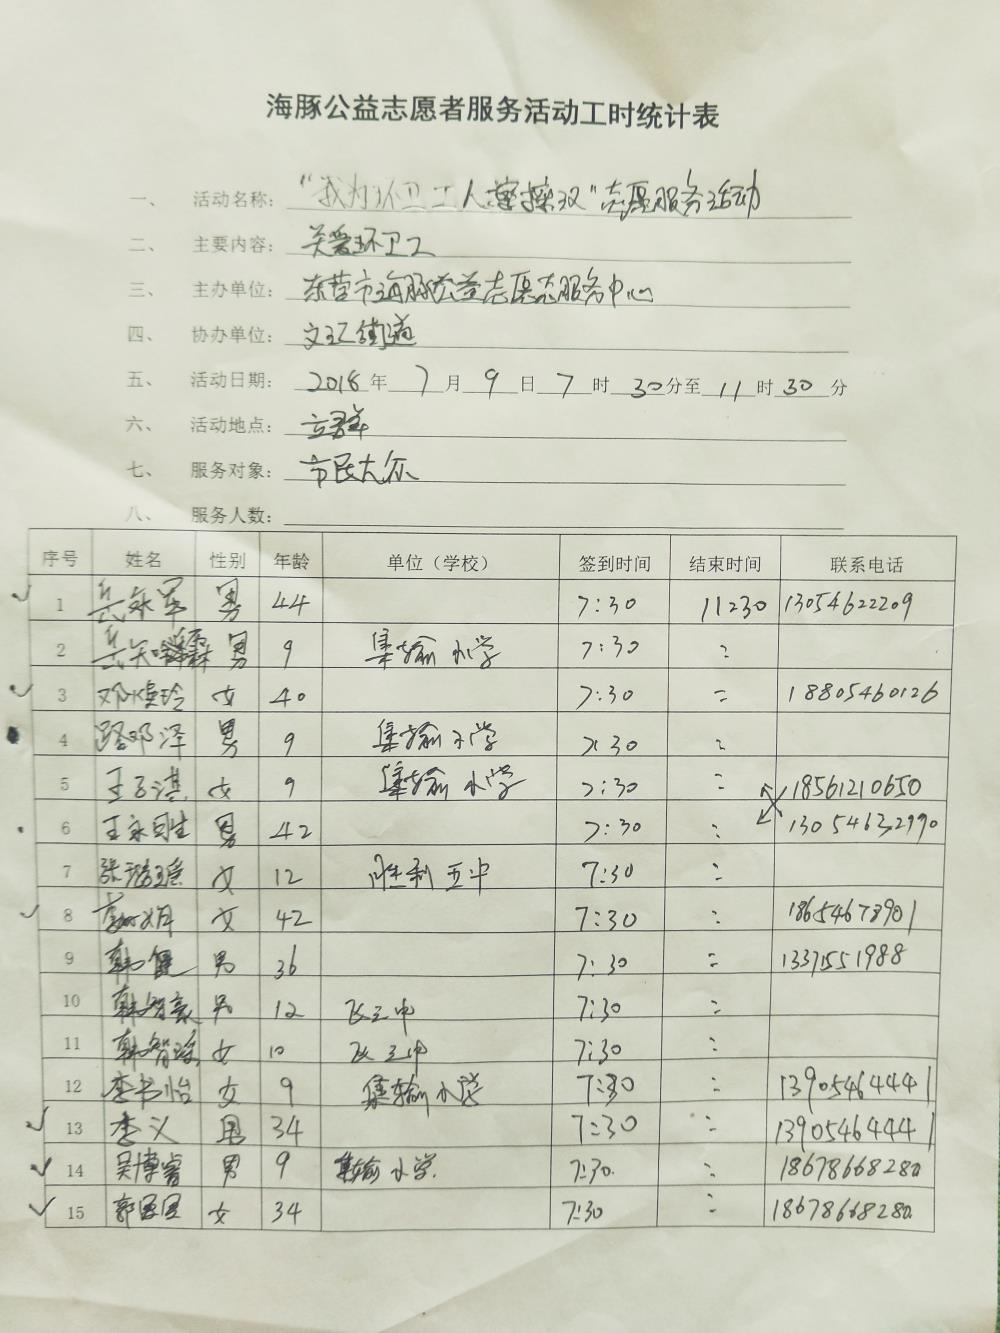 海豚公益志愿者服务活动工时统计表
一、 活动名称: "我为环卫工人擦擦汉"志愿服务活动
二、 主要内容: 关爱环卫工
三、 主办单位: 东营市海豚公益志愿者服务中心
四、 协办单位: 文汇街道
五、 活动日期: 2018年 7月 9日 7时 30分至 11时 30分
六、 活动地点: 立群
七、 服务对象: 市民大众
八、 服务人数:
序号 姓名 性别 年龄 单位（学校） 签到时间 结束时间 联系电话
1 岳永军 男 44 7:30 11230 13054622209
2 男 9 集输小学 7:30 :
3 女 40 7:30 = 18805460126
4 路邓泽 男 9 集输小学 7:30 :
5 王子淇 女 9 集输小学 7:30 : 18561210650
6 男 42 7:30 : 13054632990
7 女 12 胜利五中 7:30 :
8 女 42 7:30 : 18654678901
9 韩健 男 36 7:30 : 13371551988
10 韩智豪 男 12 7:30 :
11 女 10 7:30 :
12 李书怡 女 9 集输小学 7:30 : 13905464441
13 李义 男 34 7:30 : 13905464441
14 吴博睿 男 9 集输小学. 7:30. : 18678668280
15 女 34 7:30 : 18678668280